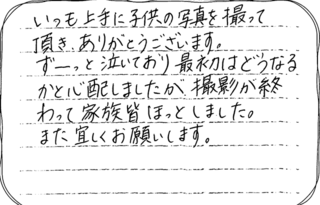 いつも上手に子供の写真を撮って
頂き、ありがとうございます。
ずーっと泣いており最初はどうなる
かと心配しましたが、撮影が終
わって家族皆ほっとしました。
また宜しくお願いします。